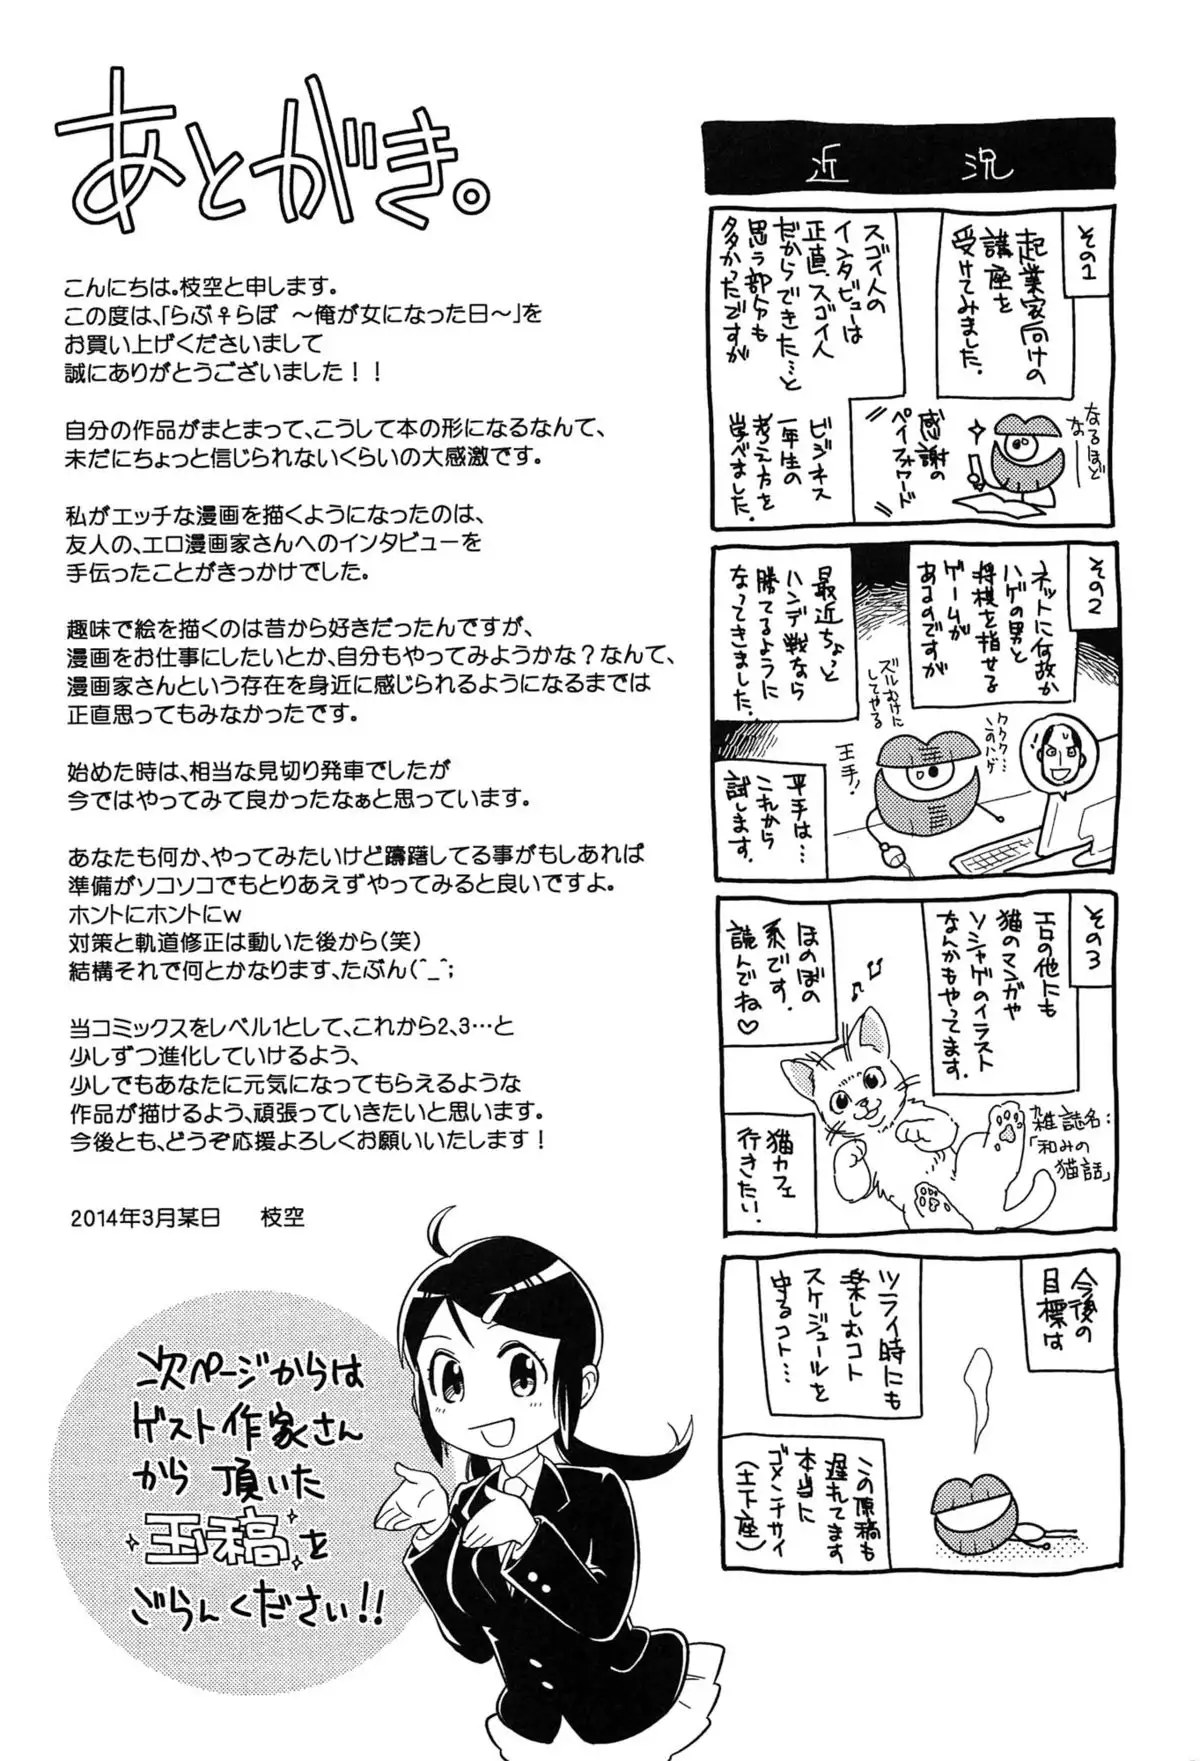 あとがき。
こんにちは。枝空と申します。
この度は、「らぶ♀らぼ ～俺が女になった日～」を
お買い上げくださいまして
誠にありがとうございました！！
自分の作品がまとまって、こうして本の形になるなんて、
未だにちょっと信じられないくらいの大感激です。
私がエッチな漫画を描くようになったのは、
友人の、エロ漫画家さんへのインタビューを
手伝ったことがきっかけでした。
趣味で絵を描くのは昔から好きだったんですが、
漫画をお仕事にしたいとか、自分もやってみようかな？なんて、
漫画家さんという存在を身近に感じられるようになるまでは
正直思ってもみなかったです。
始めた時は、相当な見切り発車でしたが
今ではやってみて良かったなぁと思っています。
あなたも何か、やってみたいけど躊躇してる事がもしあれば
準備がソコソコでもとりあえずやってみると良いですよ。
ホントにホントにw
対策と軌道修正は動いた後から(笑)
結構それで何とかなります、たぶん(^_^;
当コミックスをレベル1として、これから2、3…と
少しずつ進化していけるよう、
少しでもあなたに元気になってもらえるような
作品が描けるよう、頑張っていきたいと思います。
今後とも、どうぞ応援よろしくお願いいたします！
2014年3月某日　枝空
次ページからは
ゲスト作家さん
から頂いた
玉稿を
ごらんください!!
近況
その1
起業家向けの
講座を
受けてみました。
スゴイ人の
インタビューは
正直、スゴイ人
だからできた…と
思う部分も
多かったですが
なるほど
なー
感謝の
ペイフォワード
ビジネス
一年生の
考え方を
学べました。
その2
ネットに何故か
ハゲの男と
将棋を指せる
ゲームが
あるのですが
最近ちょっと
ハンデ戦なら
勝てるように
なってきました。
ズルむけに
してやる
ククク…
このハゲ
王手！
平手は…
これから
試します。
その3
エロの他にも
猫のマンガや
ソシャゲのイラスト
なんかもやってます。
ほのぼの
系です。
読んでね♡
雑誌名：
「和みの
猫話」
猫カフェ
行きたい。
今後の
目標は
ツライ時にも
楽しむコト
スケジュールを
守るコト…
この原稿も
遅れてます
本当に
ゴメンチサイ
(土下座)